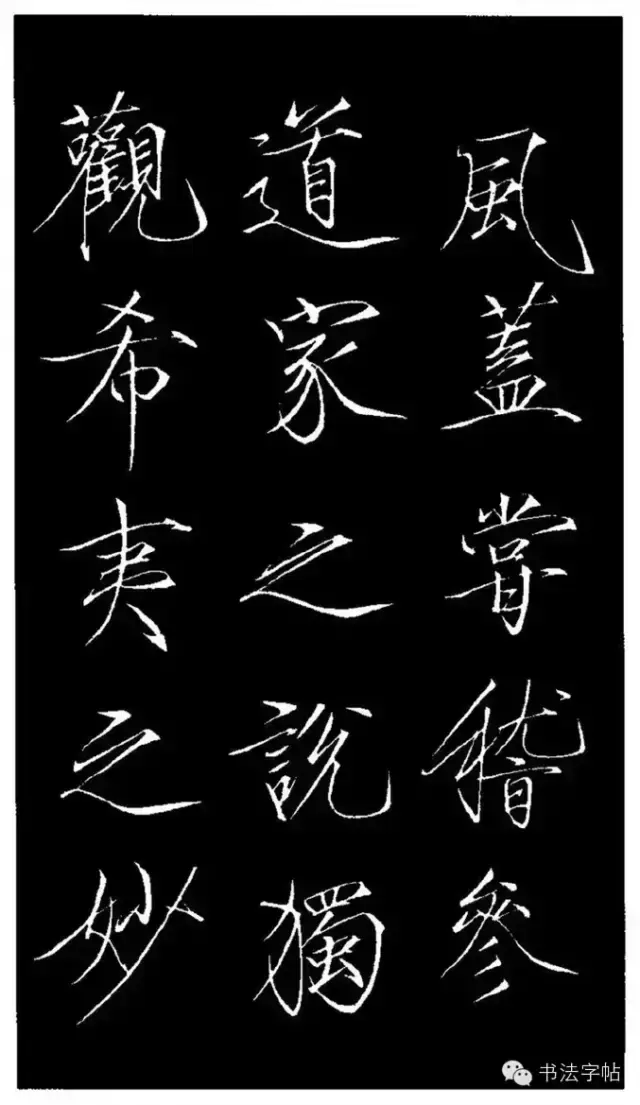 風蓋嘗稽參
道家之說獨
觀希夷之妙
书法字帖